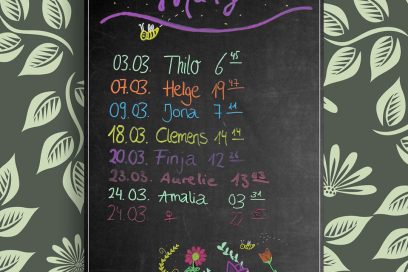 März
03.03. Thilo 6 45
07.03. Helge 19 47
09.03. Jona 7 11
18.03. Clemens 14 14
20.03. Finja 12 26
23.03. Aurelie 13 03
24.03. Amalia 03 31
24.03. ♀ 22